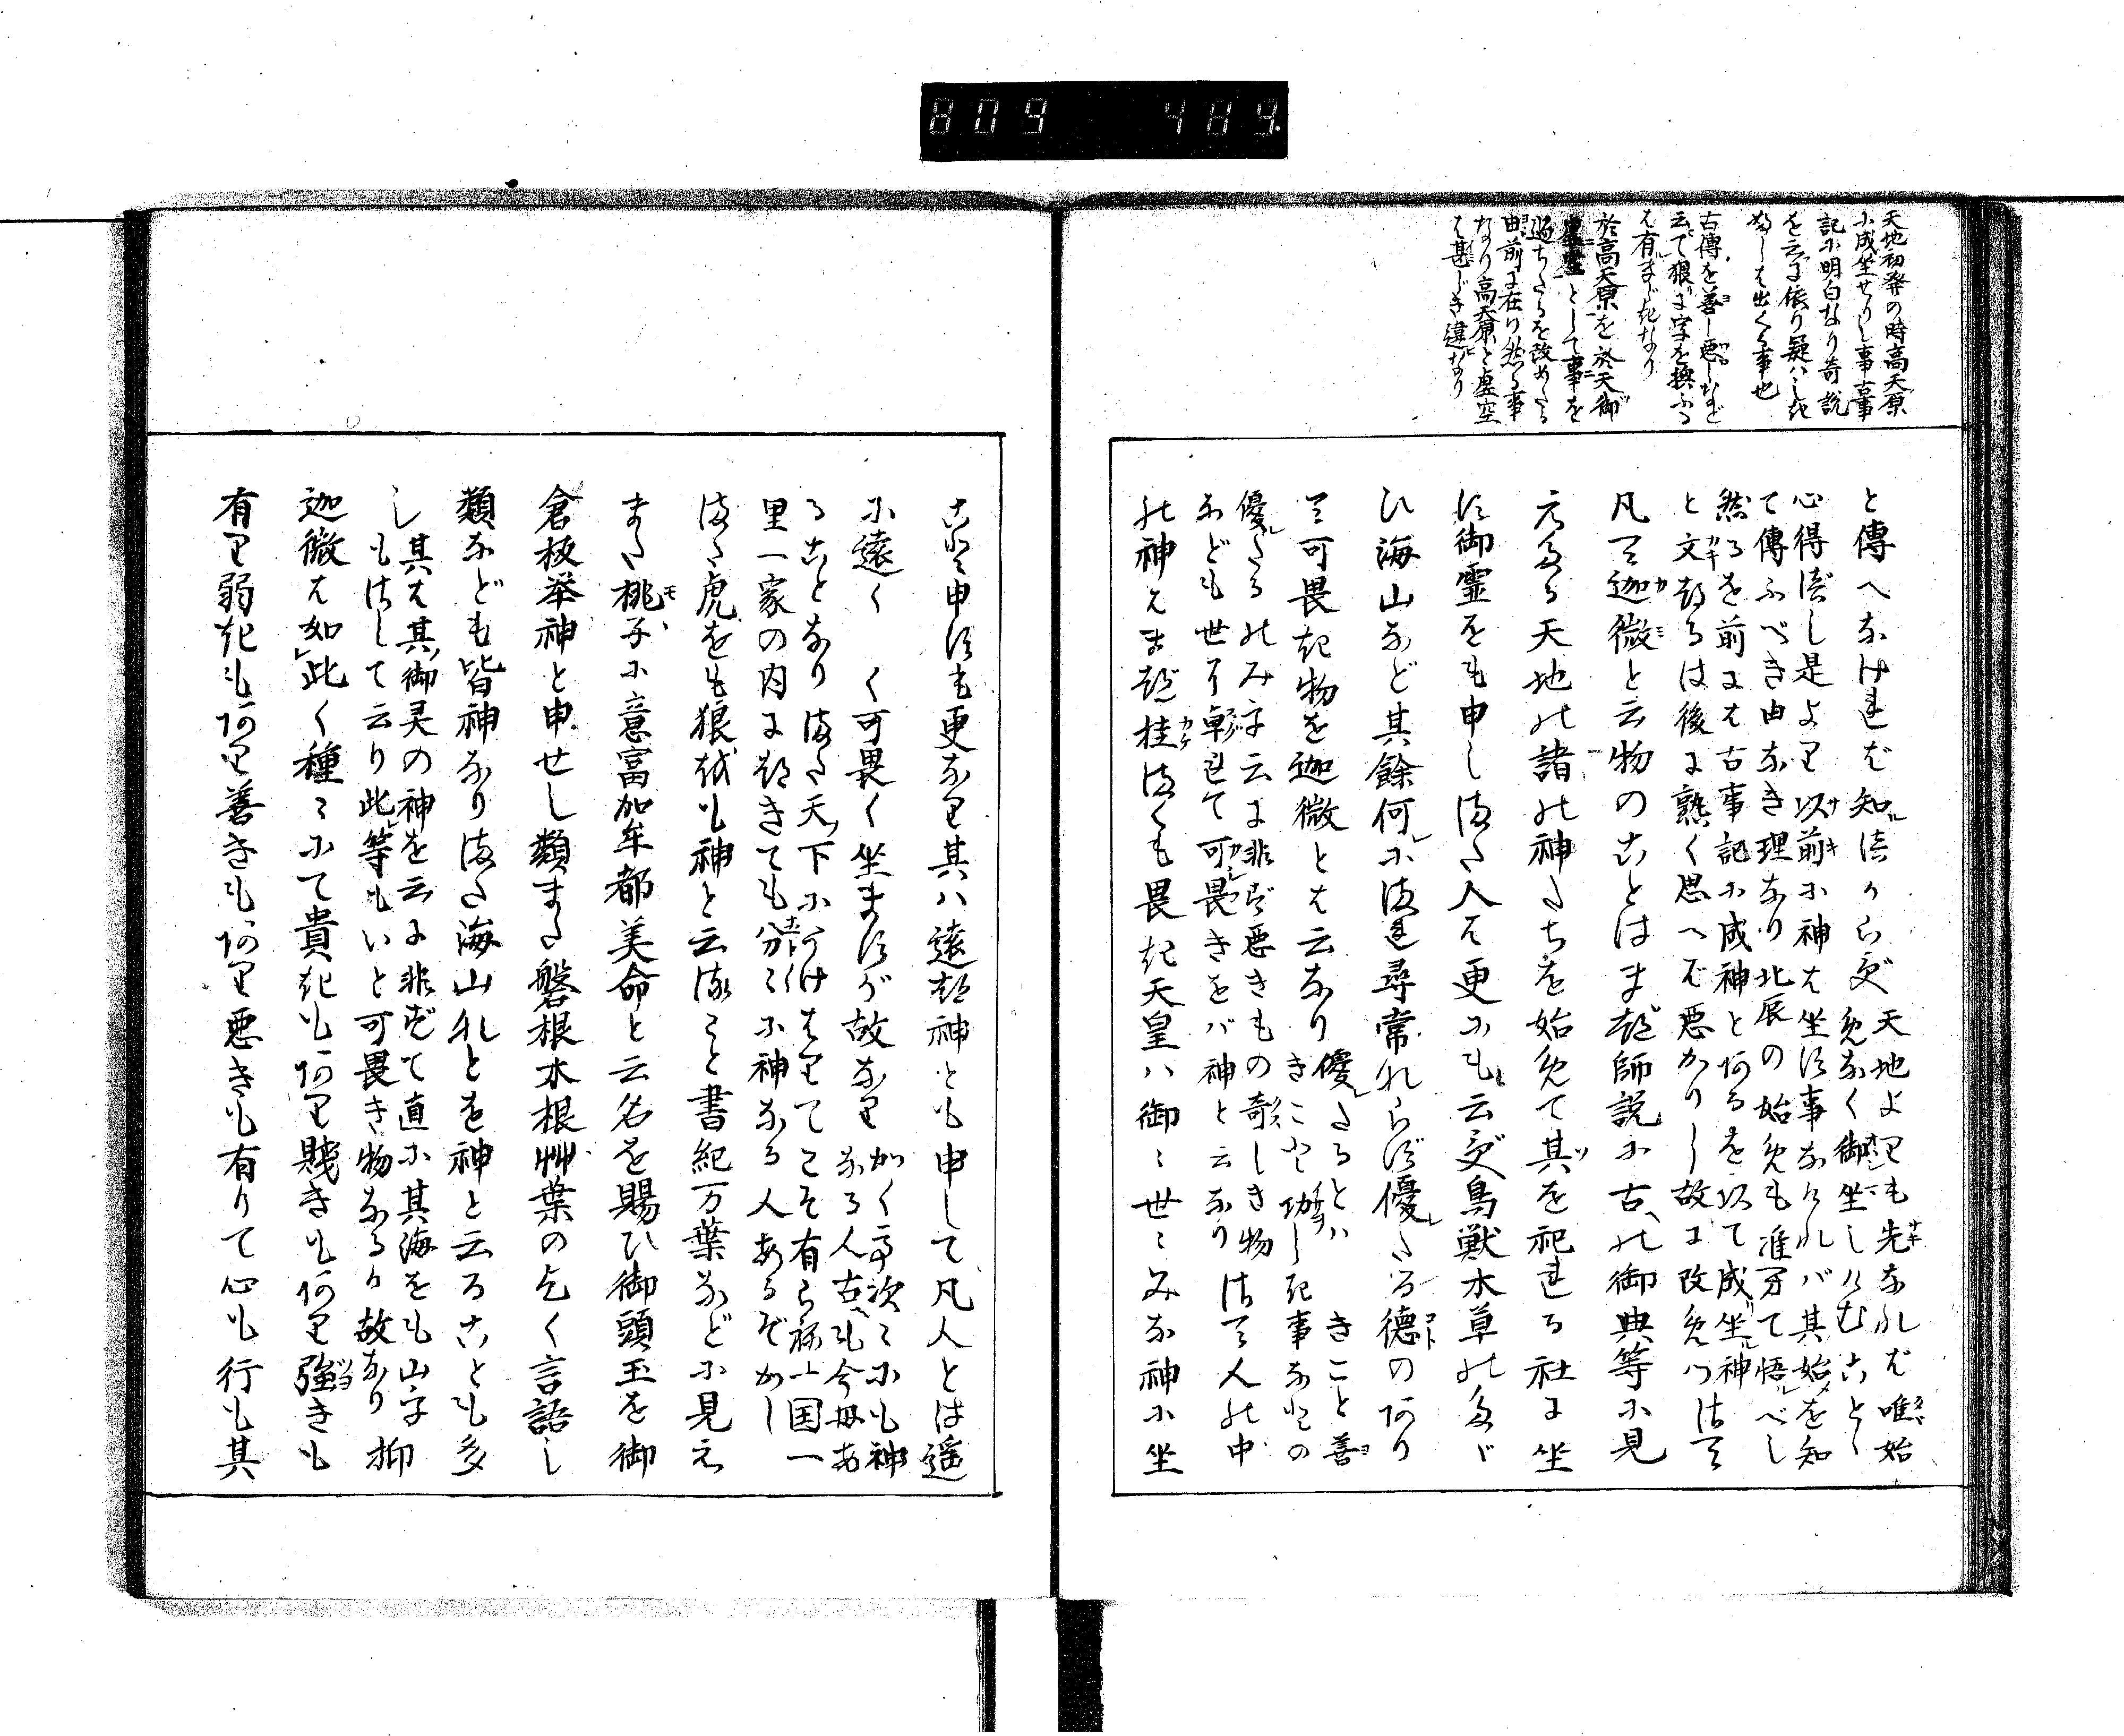 809 484
天地初発の時高天原
に成坐せりし事古事
記に明白なり奇説
を云に依り疑ハしき
如しは出く事也
古傳を善し悪しなど
云て猥に字を換ふる
は有まじきなり
於高天原を於天御
虚空として事を
過ちたるを改めたる
由前に在り然る事
なり高天原と虚空
は甚じき違なり
と傳へなければ知べからず天地よりも先なれば唯始
めなく御坐しけむことゝ
心得べし是より以前に神は坐す事なけれバ其始を知
て傳ふべき由なき理なり北辰の始めも准へて悟べし
然るを前には古事記に成神とあるを以て成坐神
と文けるは後に熟く思へば悪かりし故に改めつさて
凡て迦微と云物のことはまづ師説に古の御典等に見
元たる天地の諸の神たちを始めて其を祀れる社に坐
す御霊をも申しまた人は更にも云ず鳥獣木草のたぐ
ひ海山など其餘何にまれ尋常ならず優たる徳のあり
て可畏き物を迦微とは云なり優たるとハきこと善
きこと功しき事などの
優たるのみを云に非ず悪きもの奇しき物
なども世に勝れて可畏きをバ神と云なりさて人の中
の神はまづ桂まくも畏き天皇ハ御〻世〻みな神に坐
こと申すも更なり其ハ遠つ神とも申して凡人とは遥
に遠く く可畏く坐ますが故なりかく て次〻にも神
なる人古も今もあ
ることなりまた天下にうけはりてこそ有らね一国一
里一家の内に就きても分〻に神なる人あるぞかし
また虎をも狼をも神と云ること書紀万葉などに見え
また桃子に意富加牟都美命と云名を賜ひ御頭玉を御
倉板挙神と申せし類また磐根木根艸葉の乞く言語し
類なども皆神なりまた海山などを神と云ることも多
し其は其御灵の神を云に非ずて直に其海をも山を
もさして云り此等もいと可畏き物なるが故なり抑
迦微は如此く種〻にて貴きもあり賤きもあり強きも
有り弱きもあり善きもあり悪きも有りて心も行も其